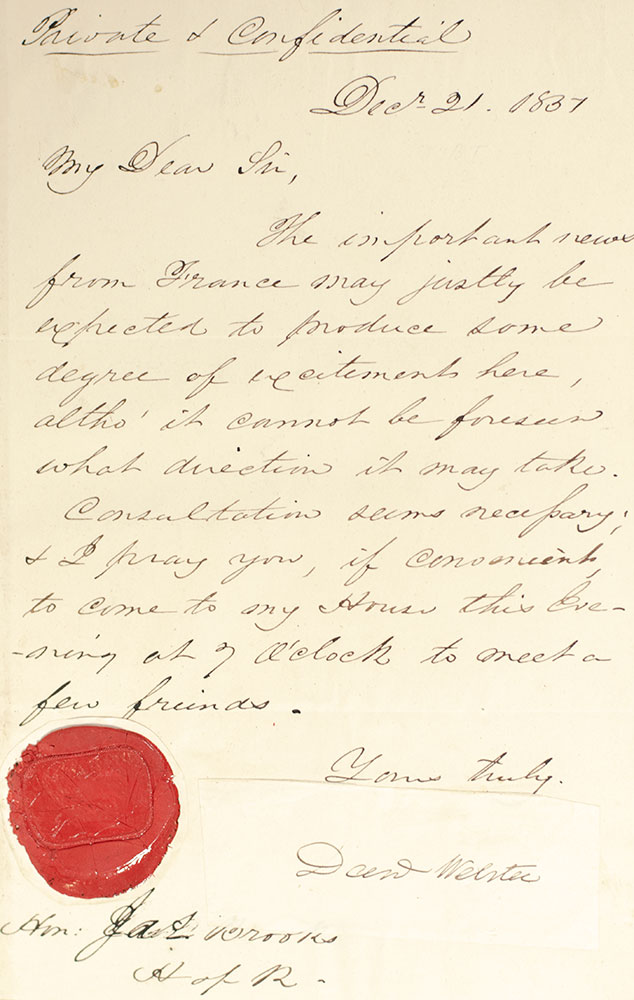 Private & Confidential
Decr 21. 1851
My Dear Sir,
The important news
from France may justly be
expected to produce some
degree of excitement here,
altho' it cannot be foreseen
what direction it may take.
Consultation seems necessary;
& I pray you, if convenient,
to come to my House this Eve-
-ning at 7 O'clock to meet a
few friends.
Yours truly.
Danl Webster
Hon: Jas. Brooks
H of R.